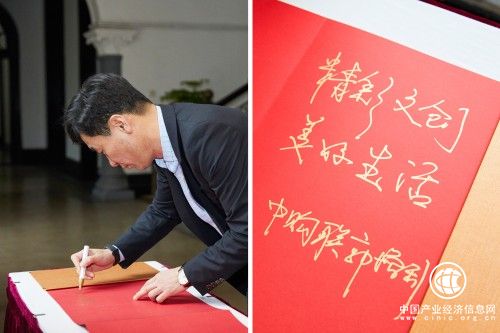 精彩文创
美好生活
中购联郭增利
中国产业经济信息网
www.cinic.org.cn